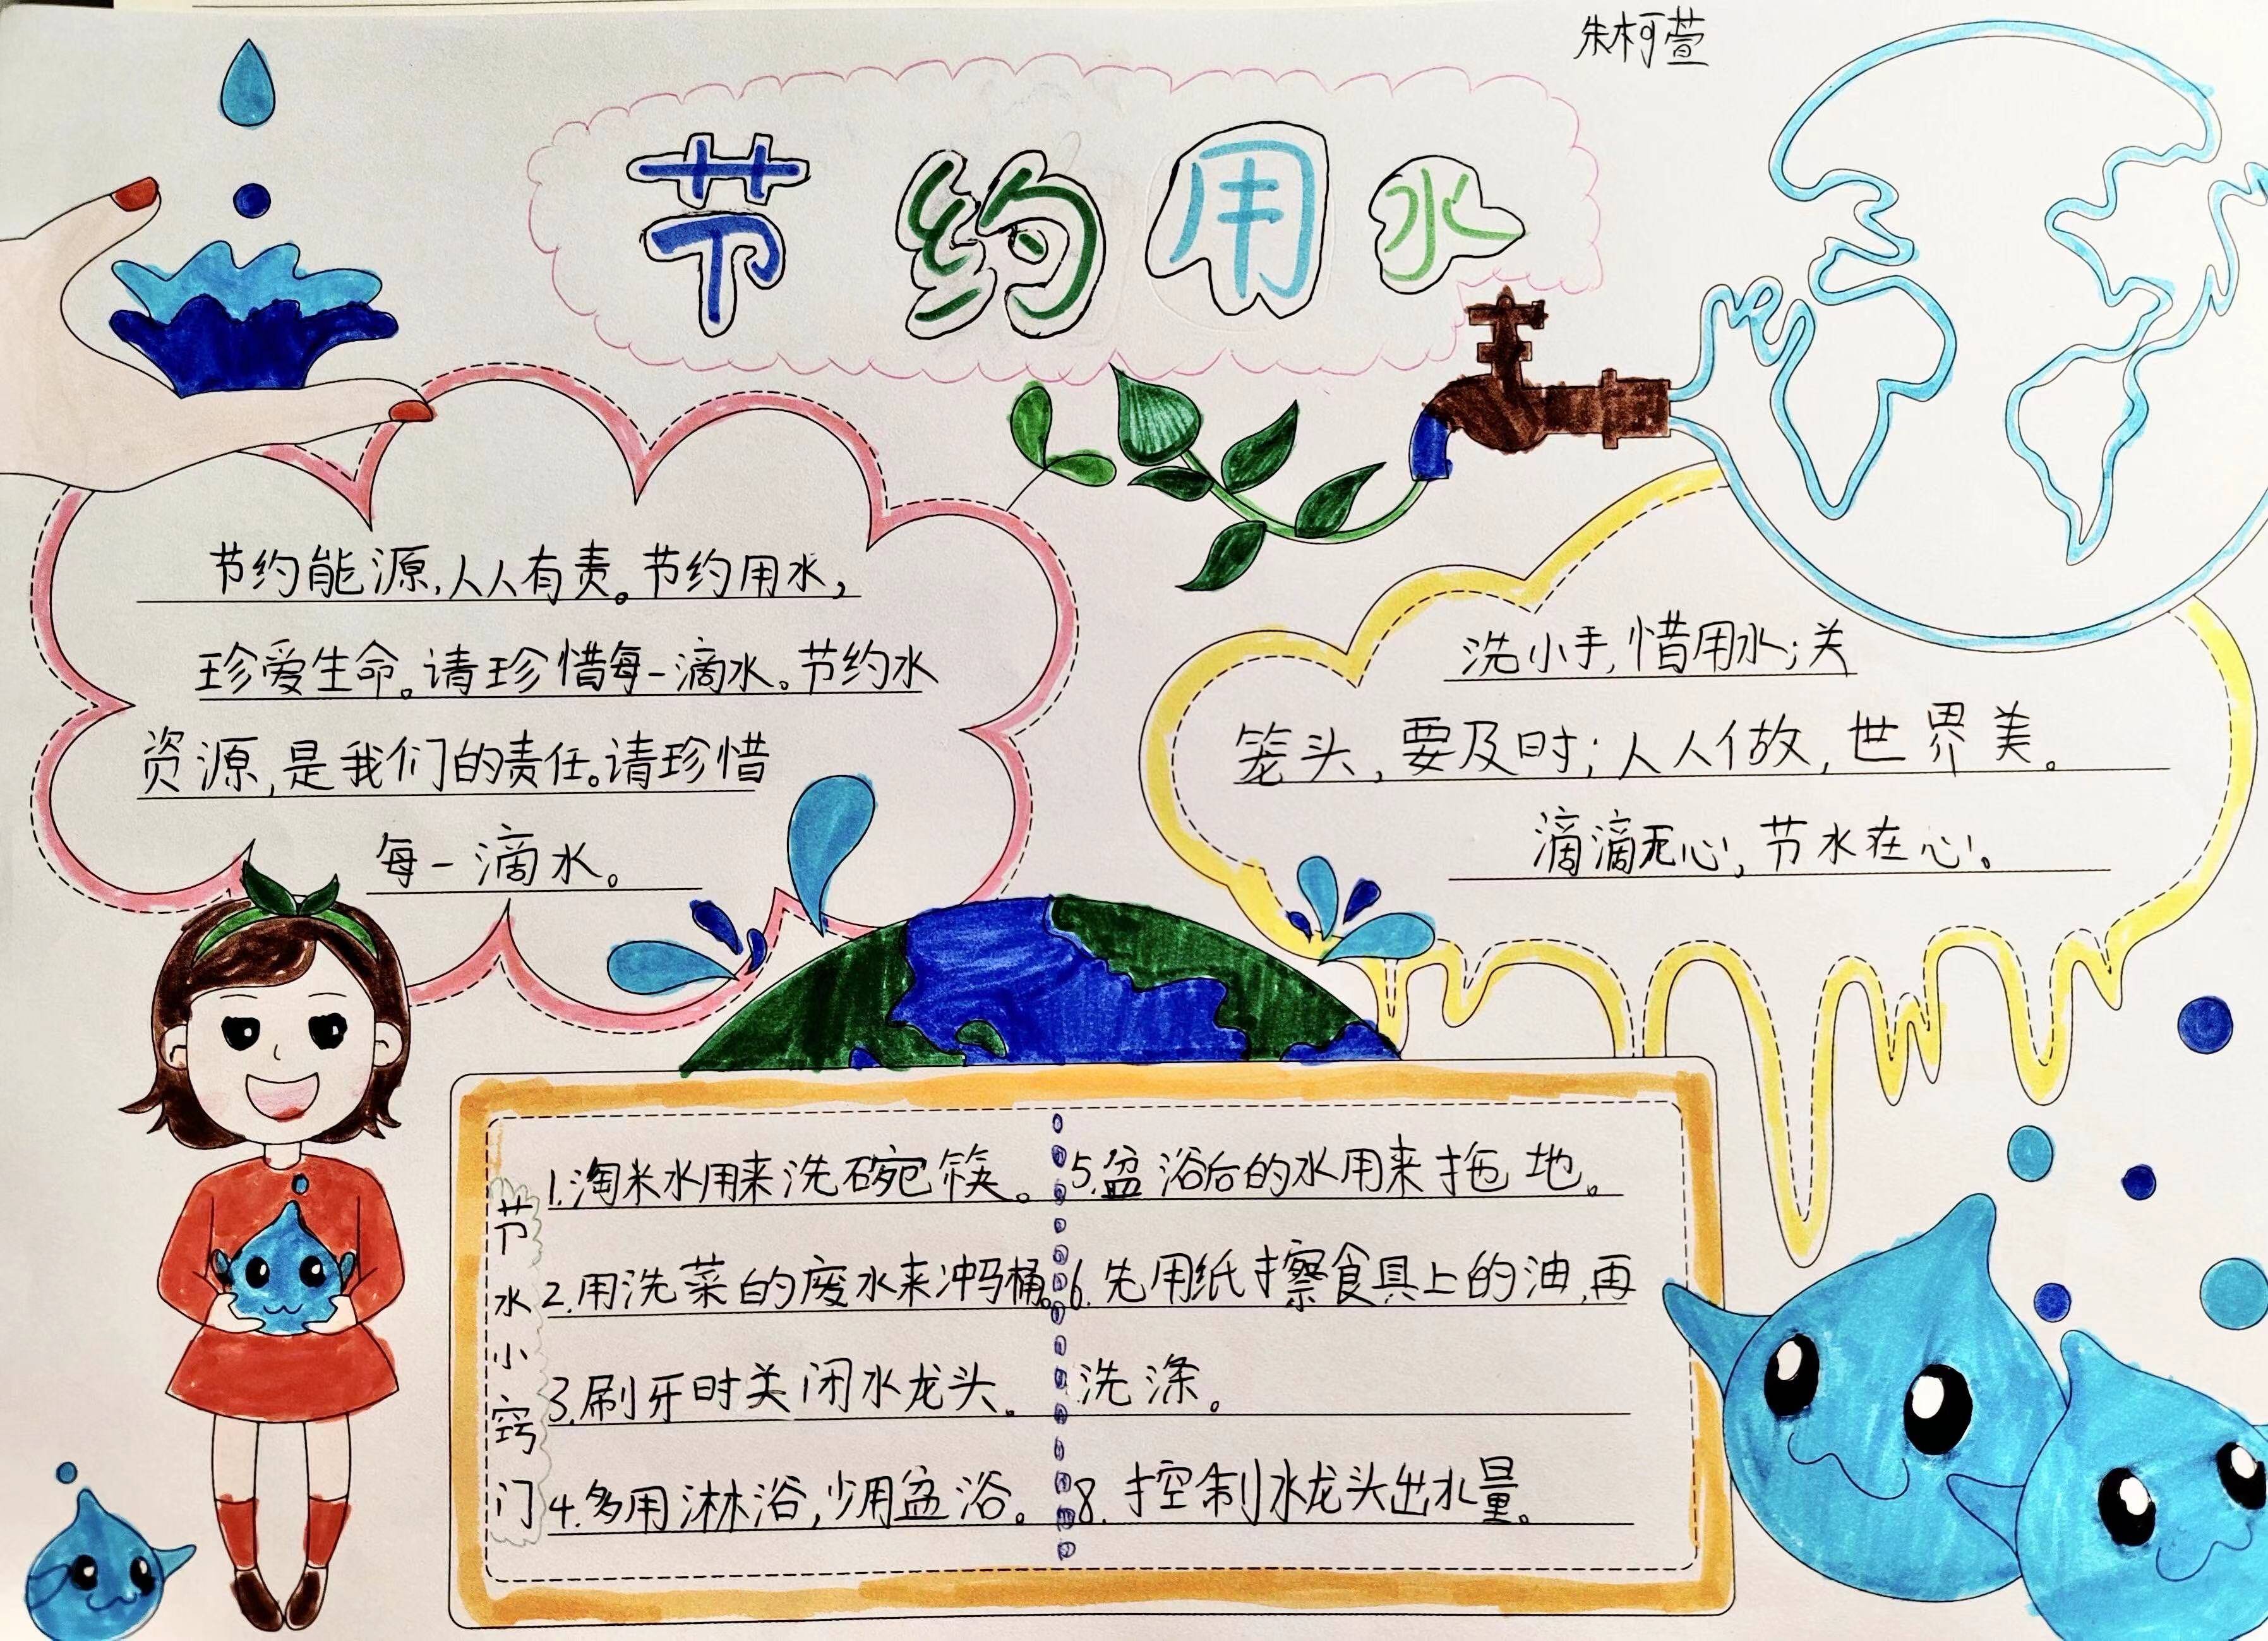 朱柯萱
节约用水
节约能源,人人有责。节约用水,
珍爱生命。请珍惜每一滴水。节约水
资源,是我们的责任。请珍惜
每一滴水。
洗小手,惜用水;关
笼头,要及时;人人做,世界美。
滴滴无心,节水在心。
节水小窍门
1.淘米水用来洗碗筷。
2.用洗菜的废水来冲马桶。
3.刷牙时关闭水龙头。
4.多用淋浴,少用盆浴。
5.盆浴后的水用来拖地。
6.先用纸擦食具上的油,再
洗涤。
8.控制水龙头出水量。